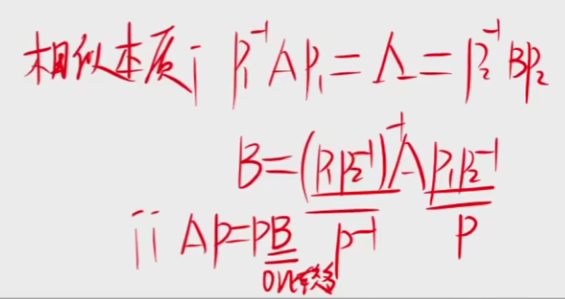 相似本质 i P₁⁻¹AP₁=Λ=P₂⁻¹BP₂
B=(P₁P₂⁻¹)⁻¹AP₁P₂⁻¹
P⁻¹ P
ii AP=PB
0元较多